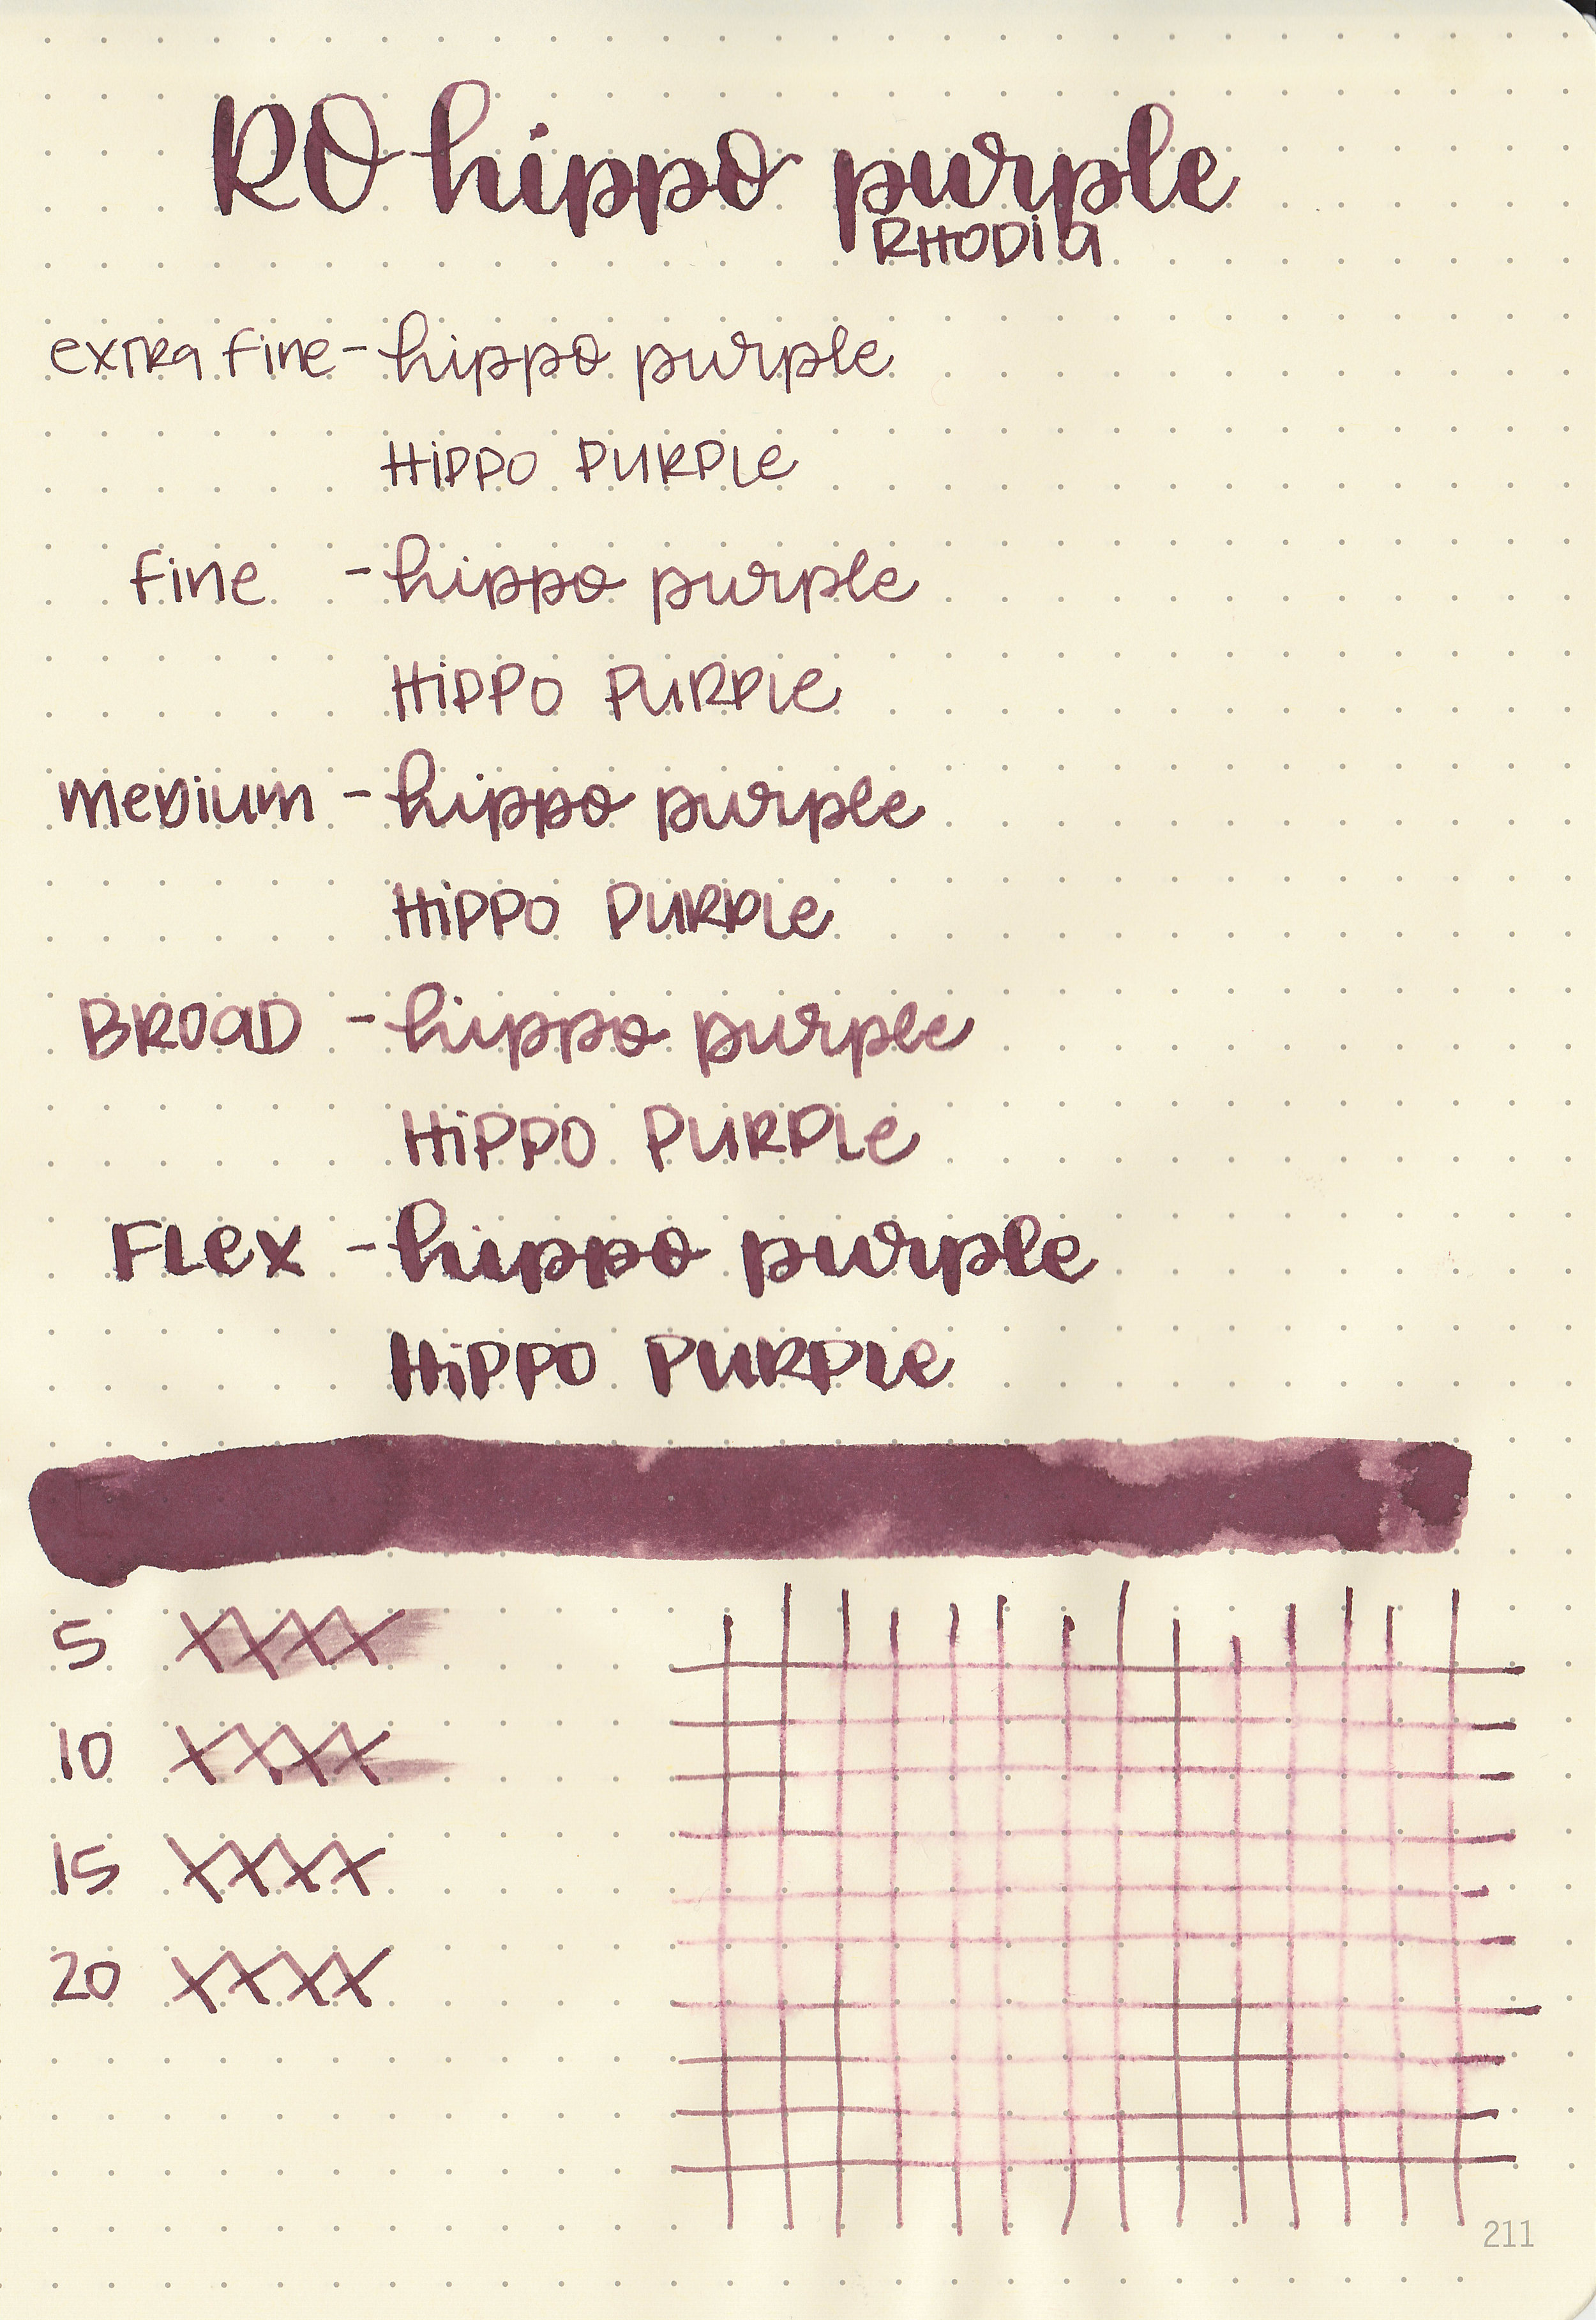 RO hippo purple
RHODIA
extra fine - hippo purple
HiPPO PURPLe
fine - hippo purple
HiPPO PURPLe
meDium - hippo purple
HiPPO PURPLe
BROaD - hippo purple
HiPPO PURPLe
FLex - hippo purple
HiPPO PURPLe
5 XXXX
10 XXXX
15 XXXX
20 XXXX
211